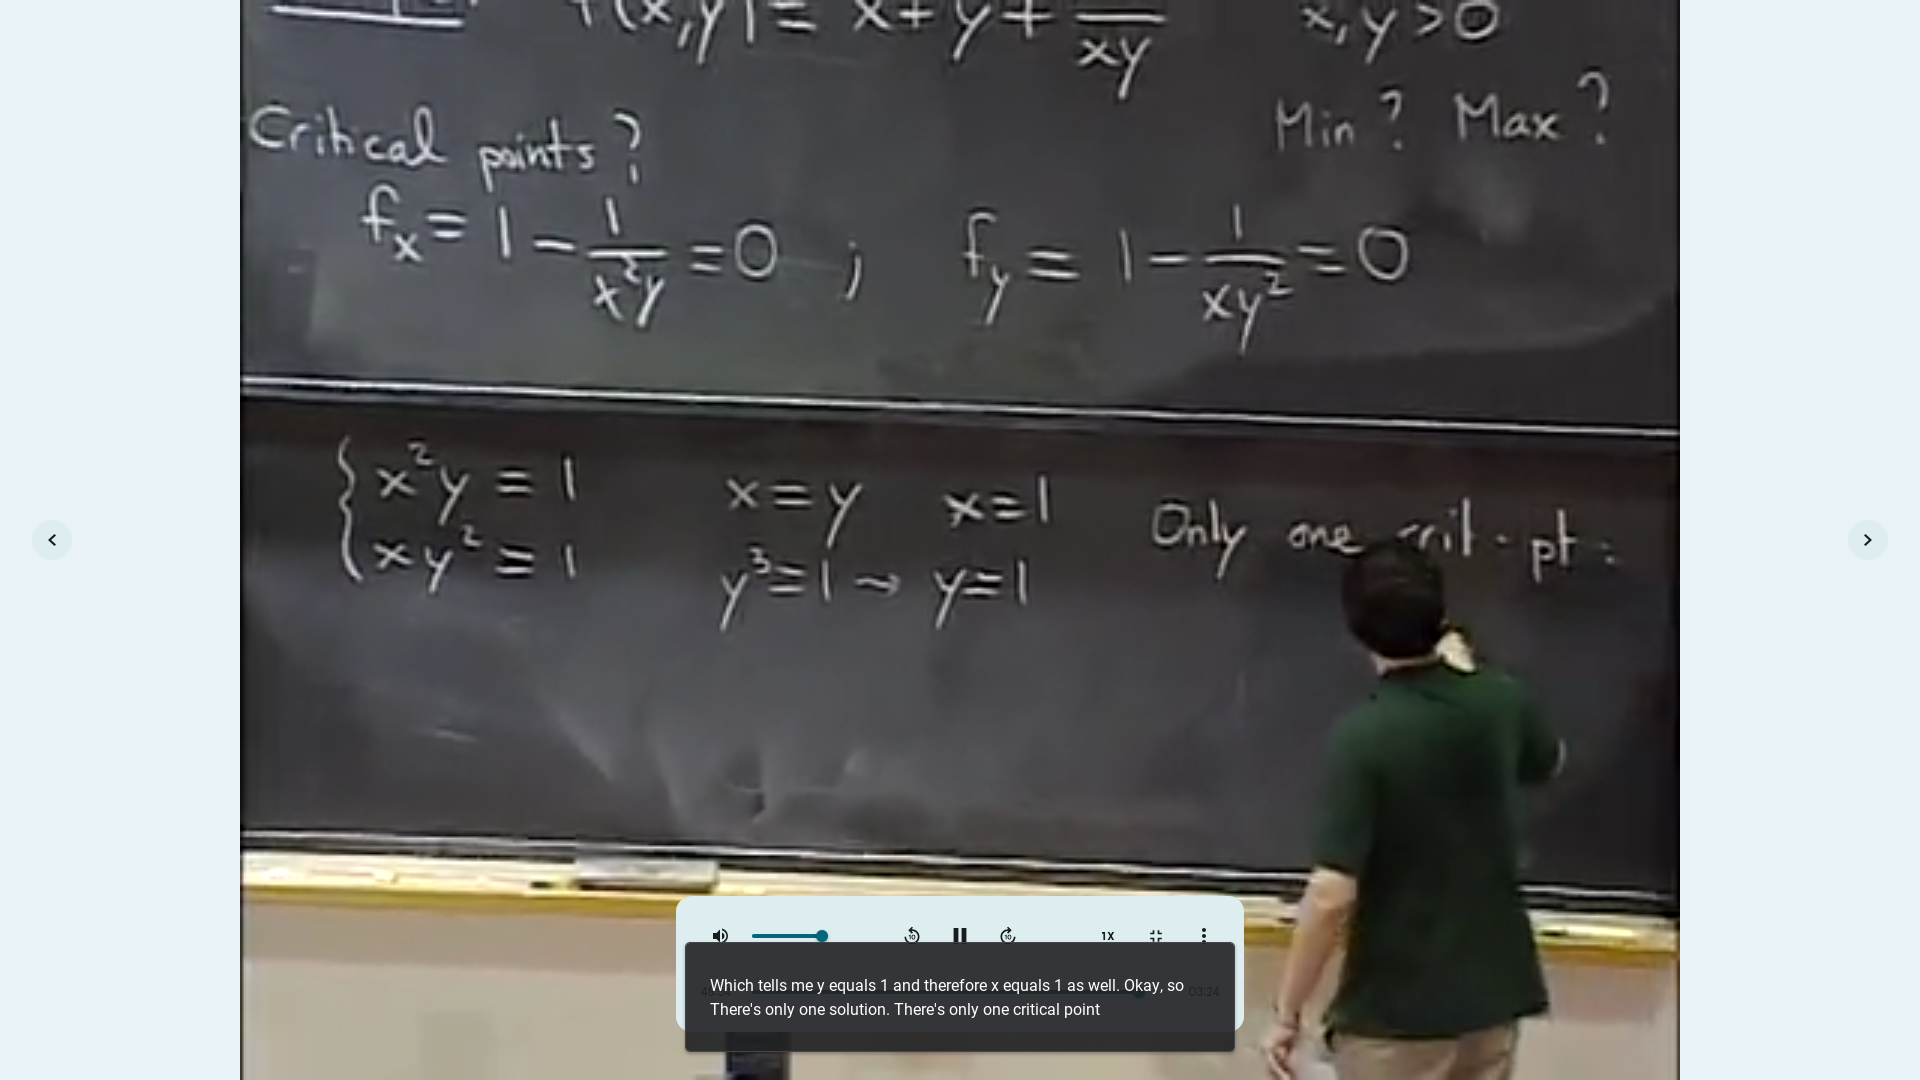 f(x,y) = x+y+ —/xy x,y>0
Critical points? Min? Max?
fx = 1 - 1/x²y = 0 ; fy = 1 - 1/xy² = 0
x²y = 1 x=y x=1 Only one crit. pt:
xy² = 1 y³=1 → y=1
1X
Which tells me y equals 1 and therefore x equals 1 as well. Okay, so
There's only one solution. There's only one critical point
03:24